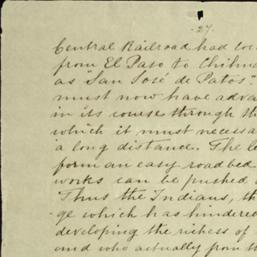 27.
Central Railroad had
from El Paso to Chihua
as "San José de Patos"
must now have adva
in its course through th
which it must necessa
a long distance. The le
form an easy roadbed
works can be pushed
Thus the Indians, th
ge which has hindered
developing the riches of
and who actually from th